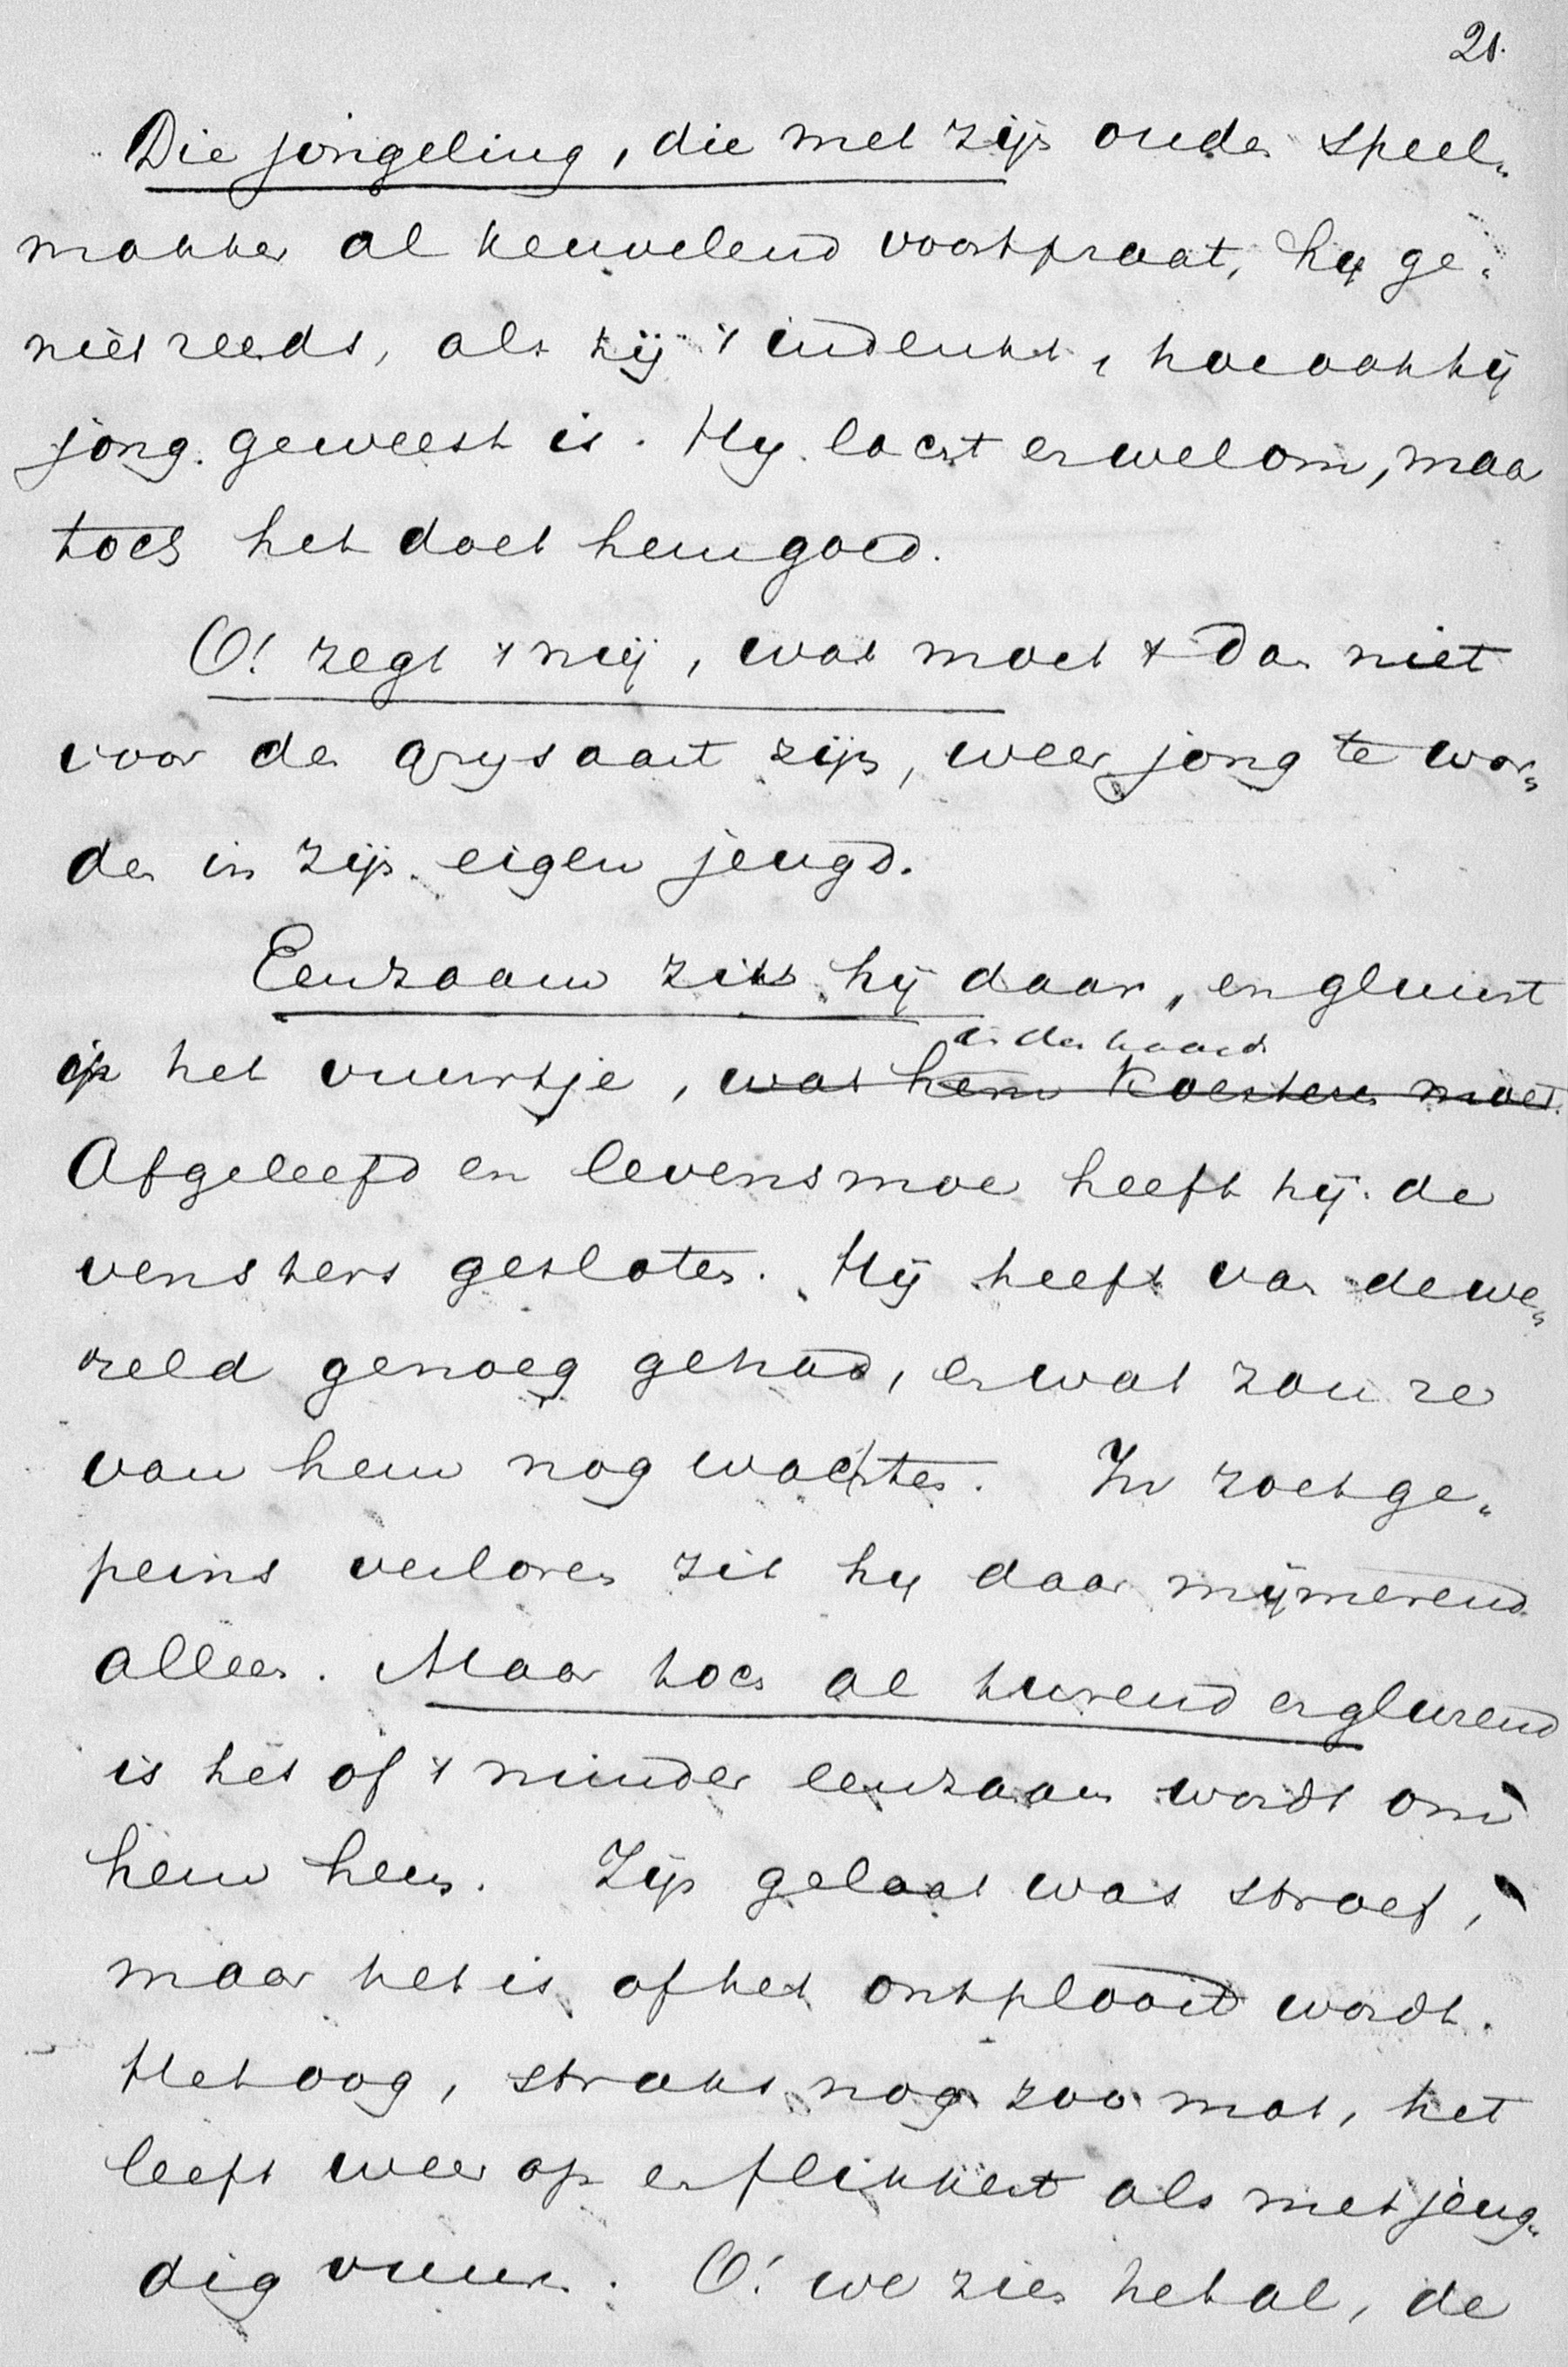 21.
Die jongeling, die met zijn ouden speel-
makker al keuvelend voortpraat, hij ge-
niet reeds, als hij 't indenkt, hoe ook hij
jong geweest is. Hij lacht er wel om, maar
toch het doet hem goed.
O! zegt 't mij, wat moet 't dan niet
voor den grijsaart zijn, weer jong te wor-
den in zijn eigen jeugd.
Eenzaam zit hij daar, en gluurt
in den haard
op het vuurtje, wat hem koesteren moet.
Afgeleefd en levensmoe heeft hij de
vensters gesloten. Hij heeft van de we-
reld genoeg gehad, en wat zou ze
van hem nog wachten. In zoet ge-
peins verloren zit hij daar mijmerend
alleen. Maar toch al turend en glurend
is het of 't minder eenzaam wordt om
hem heen. Zijn gelaat was stroef,
maar het is of het ontplooid wordt.
Het oog, straks nog zoo mat, het
leeft weer op en flikkert als met jeug-
dig vuur. O! we zien het al, de